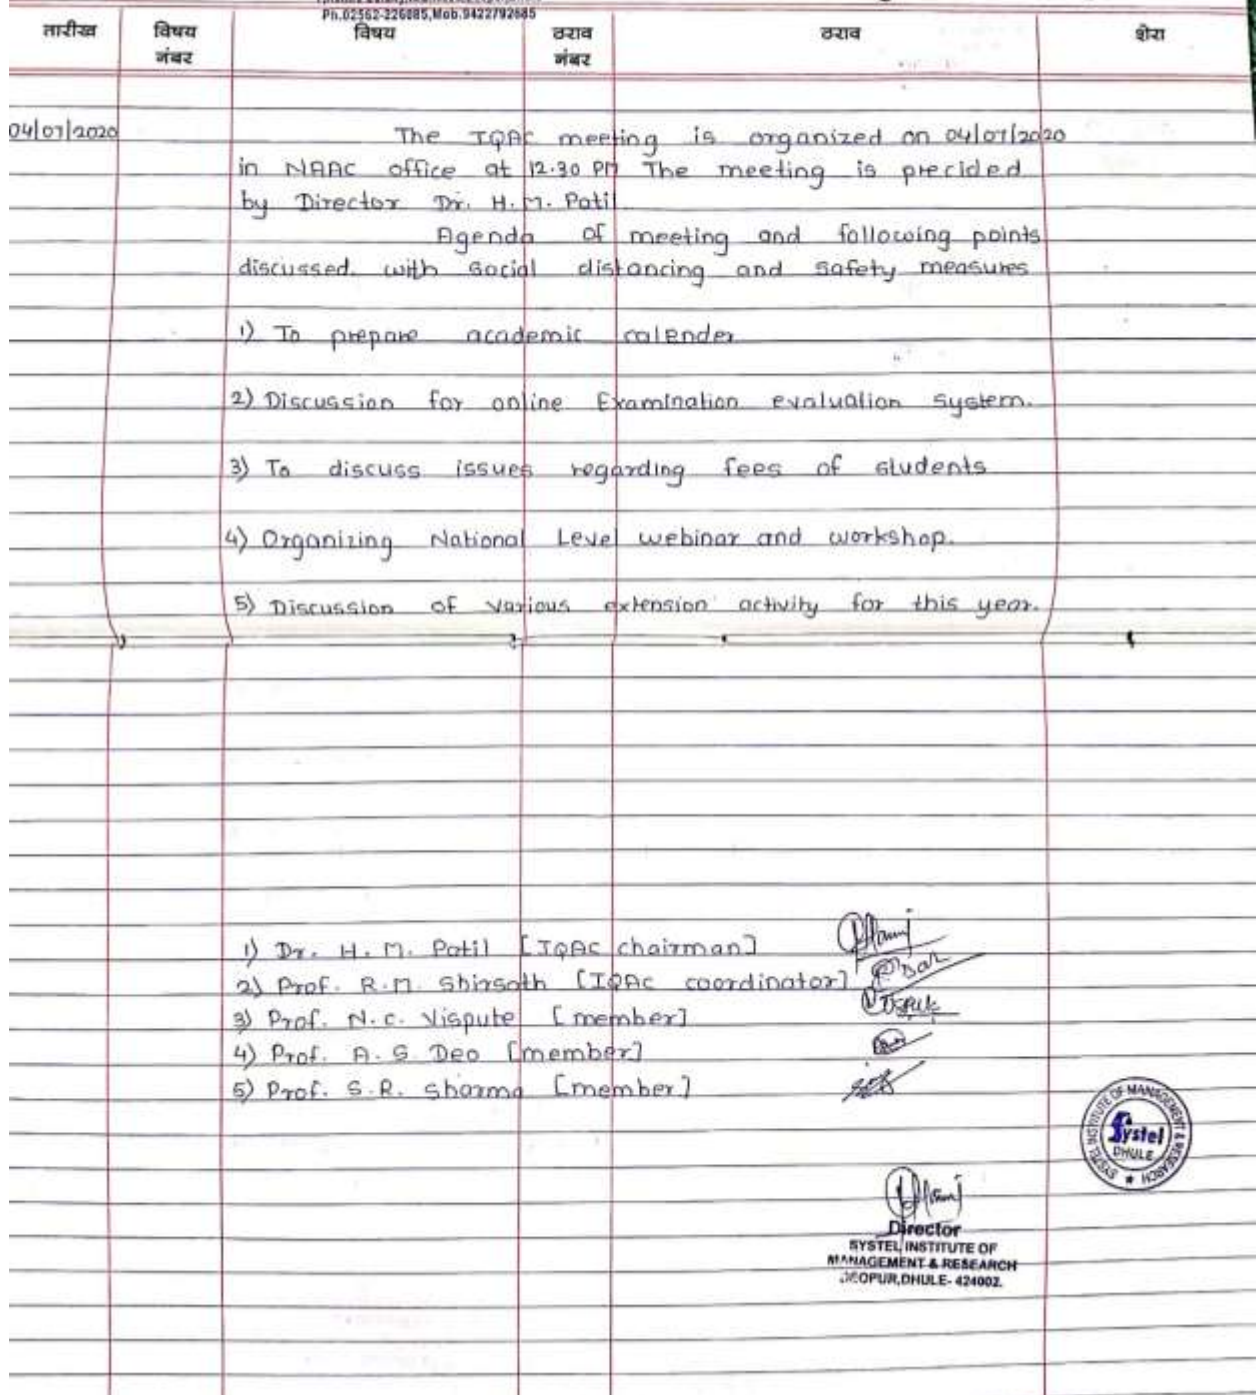 Ph.02562-226085,Mob.9422792685
तारीख विषय नंबर विषय ठराव नंबर ठराव शेरा
04/07/2020 The IQAC meeting is organized on 04/07/2020
in NAAC office at 12.30 PM The meeting is precided
by Director Dr. H.M. Patil
Agenda of meeting and following points
discussed. with social distancing and safety measures
1) To prepare academic calender
2) Discussion for online Examination evaluation system.
3) To discuss issues regarding fees of students
4) Organizing National Level webinar and workshop.
5) Discussion of various extension activity for this year.
1) Dr. H. M. Patil [IQAC chairman]
2) Prof. R.M. Shirsath [IQAC coordinator]
3) Prof. N.C. Vispute [member]
4) Prof. A.S. Deo [member]
5) Prof. S.R. Sharma [member]
SYSTEL INSTITUTE OF MANAGEMENT & RESEARCH
Systel
DHULE
Director
SYSTEL INSTITUTE OF
MANAGEMENT & RESEARCH
DEOPUR,DHULE- 424002.